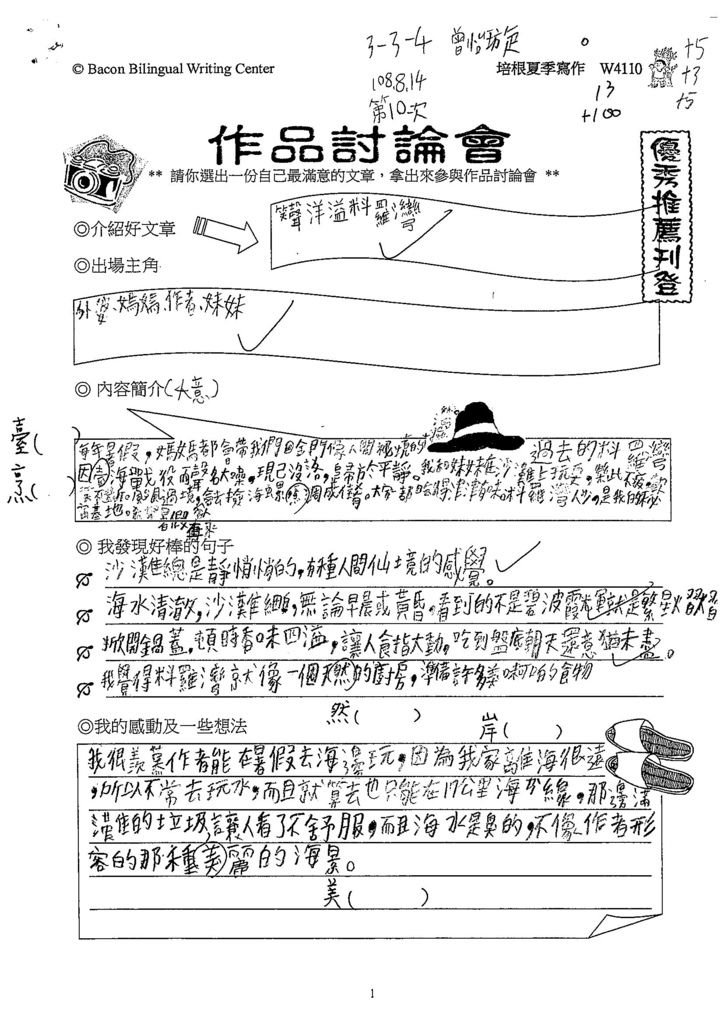 3-3-4 曾怡琁
© Bacon Bilingual Writing Center
培根夏季寫作 W4110
+5
+3
+5
108.8.14
第10次
13
+100
作品討論會
** 請你選出一份自己最滿意的文章，拿出來參與作品討論會 **
優秀推薦刊登
◎介紹好文章
笑聲洋溢料羅灣
◎出場主角
外婆、媽媽、作者、妹妹
◎ 內容簡介(大意)
臺( )
烹( )
每年暑假，媽媽都會帶我們回金門
過去的料羅灣
因 海戰役而聲名大噪，現已沒落，歸於平靜。我和妹妹在沙灘上玩
◎ 我發現好棒的句子
沙灘總是靜悄悄的，有種人間仙境的感覺。
海水清澈，沙灘綿細，無論早晨或黃昏，看到的不是碧波霞光就是繁星
掀開鍋蓋，頓時香味四溢，讓人食指大動，吃到盤底朝天還意猶未盡。
我覺得料羅灣就像一個天然的廚房，準備許多美味可口的食物
然( )
岸( )
◎我的感動及一些想法
我很羨慕作者能在暑假去海邊玩，因為我家離海很遠
，所以不常去玩水，而且就算去也只能在17公里海岸線，那邊滿
灘的垃圾讓人看了不舒服，而且海水是臭的，不像作者形
容的那種美麗的海景。
美( )
1